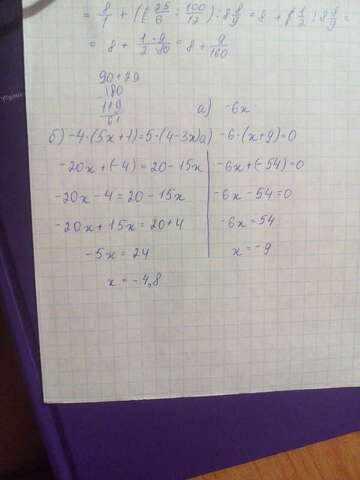 = 8/1 + (25/6 : 100/12) : 8 8/9 = 8 + (1/2) : 8 8/9 =
= 8 + 1·9/2·80 = 8 + 9/160
90+79
180
119
61
а) -6x
б) -4·(5x+1)=5·(4-3x)
-20x+(-4)=20-15x
-20x-4=20-15x
-20x+15x=20+4
-5x=24
x=-4,8
а) -6·(x+9)=0
-6x+(-54)=0
-6x-54=0
-6x=54
x=-9